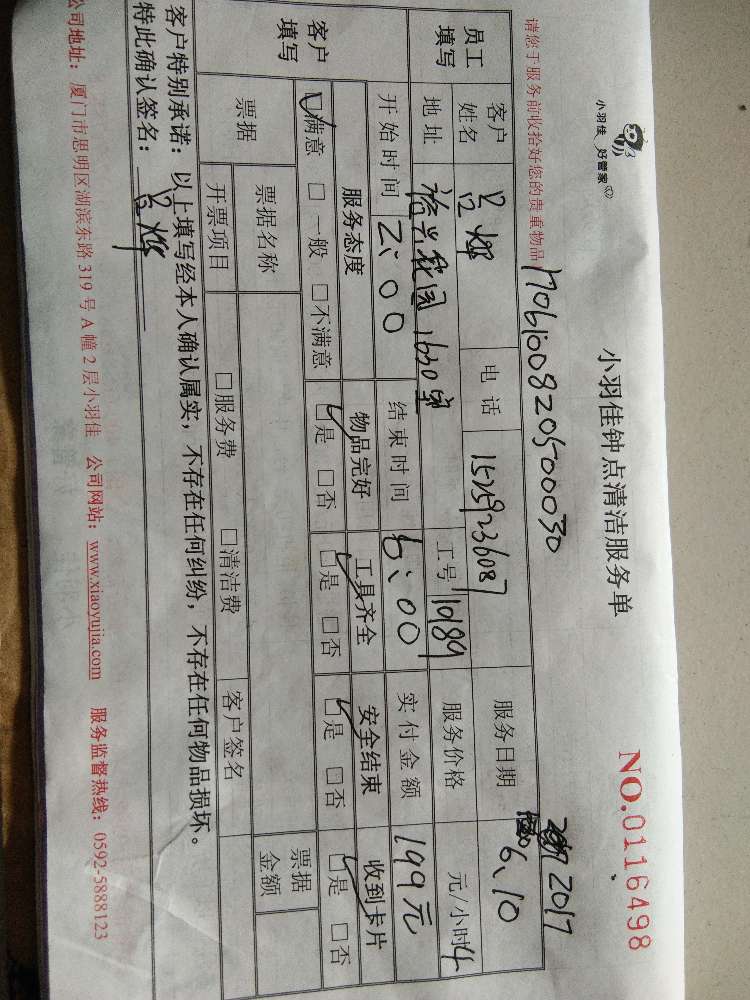 小羽佳 好管家
小羽佳钟点清洁服务单
NO.0116498
请您于服务前收拾好您的贵重物品
17061008205000030
员工填写
客户姓名
电话 15259236087
服务日期 2017 6、10
地址 裕兴花园1630室
工号 10189
服务价格 元/小时 4
客户填写
开始时间 2:00
结束时间 6:00
实付金额 199元
服务态度 物品完好 工具齐全 安全结束 收到卡片
☑满意 □一般 □不满意 ☑是 □否 ☑是 □否 ☑是 □否 ☑是 □否
票据
票据名称
票据金额
开票项目 □服务费 □清洁费 客户签名
客户特别承诺：以上填写经本人确认属实，不存在任何纠纷，不存在任何物品损坏。
特此确认签名：
公司地址：厦门市思明区湖滨东路 319 号 A 幢 2 层小羽佳 公司网站：www.xiaoyujia.com 服务监督热线：0592-5888123